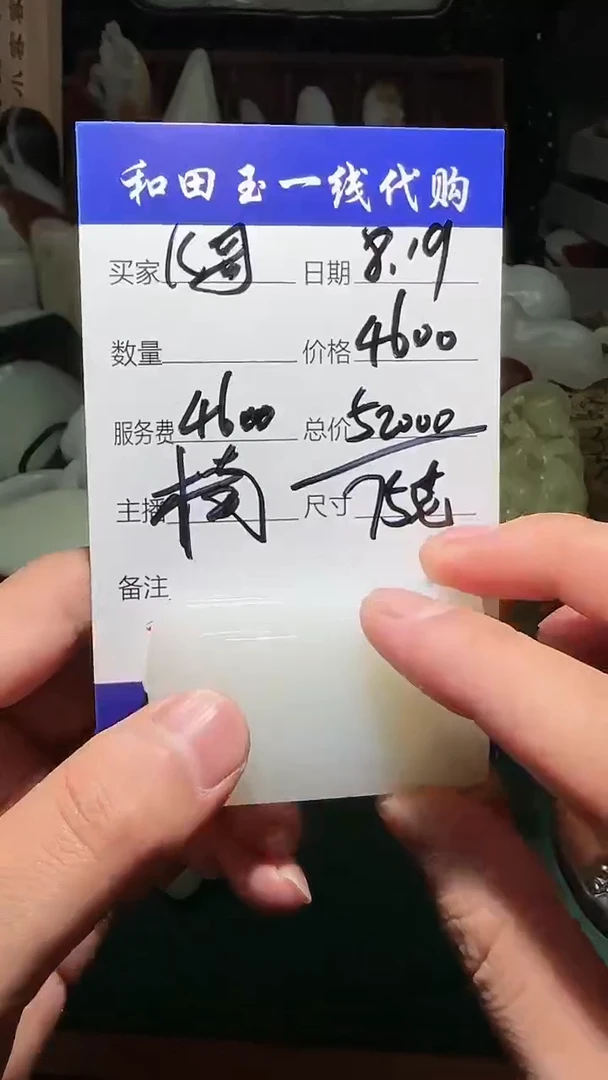 和田玉一线代购
买家 K哥 日期 8.19
数量 价格 4600
服务费 4600 总价 52000
主播 楠 尺寸 75克
备注